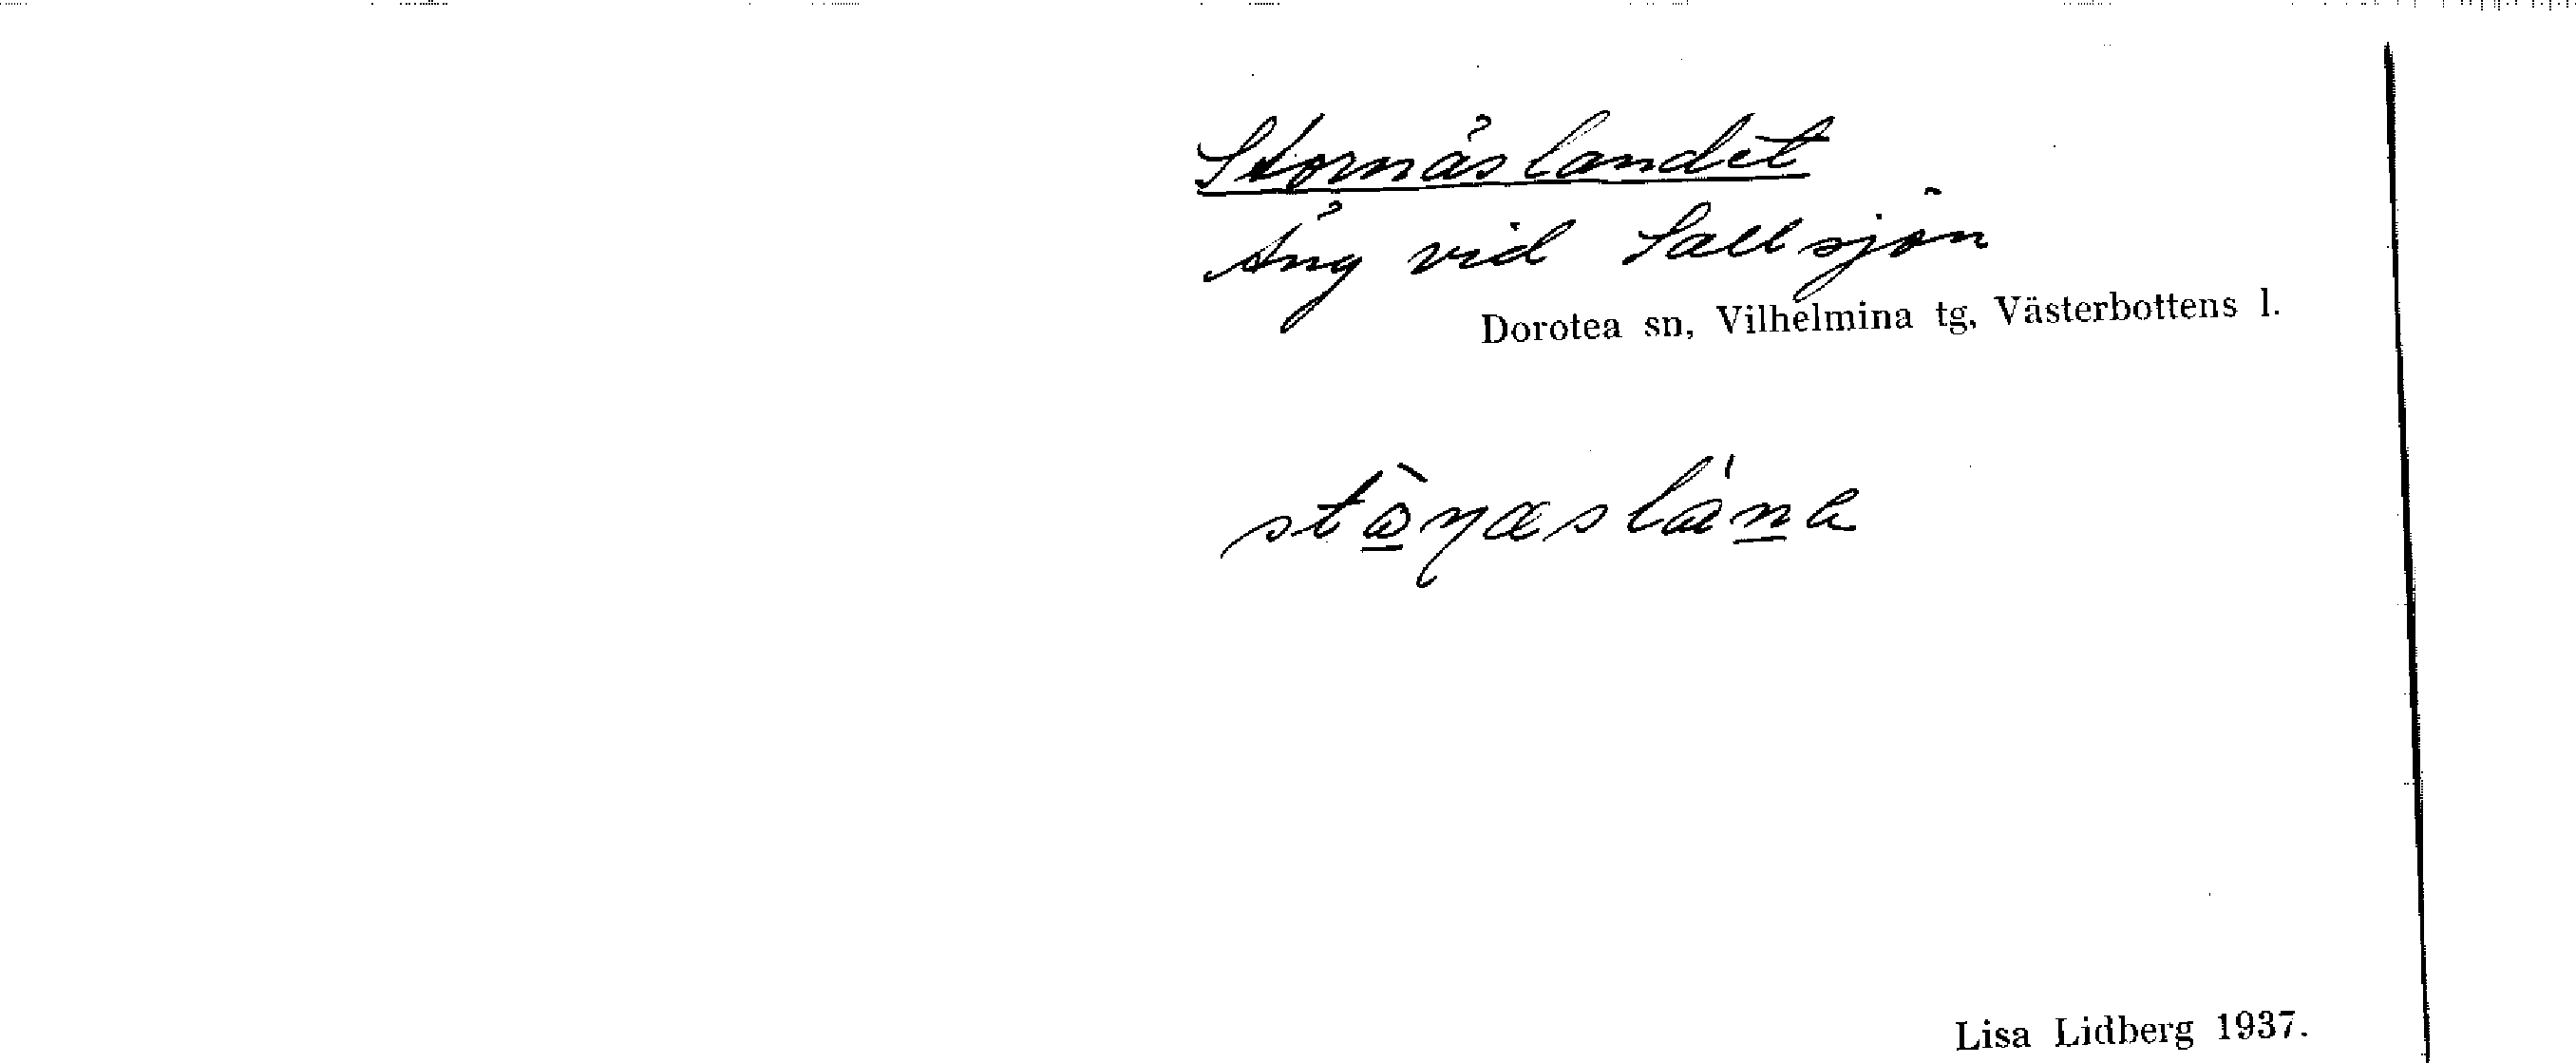 Stornäslandet
Äng vid Sallsjön
Dorotea sn, Vilhelmina tg, Västerbottens l.
Lisa Lidberg 1937.